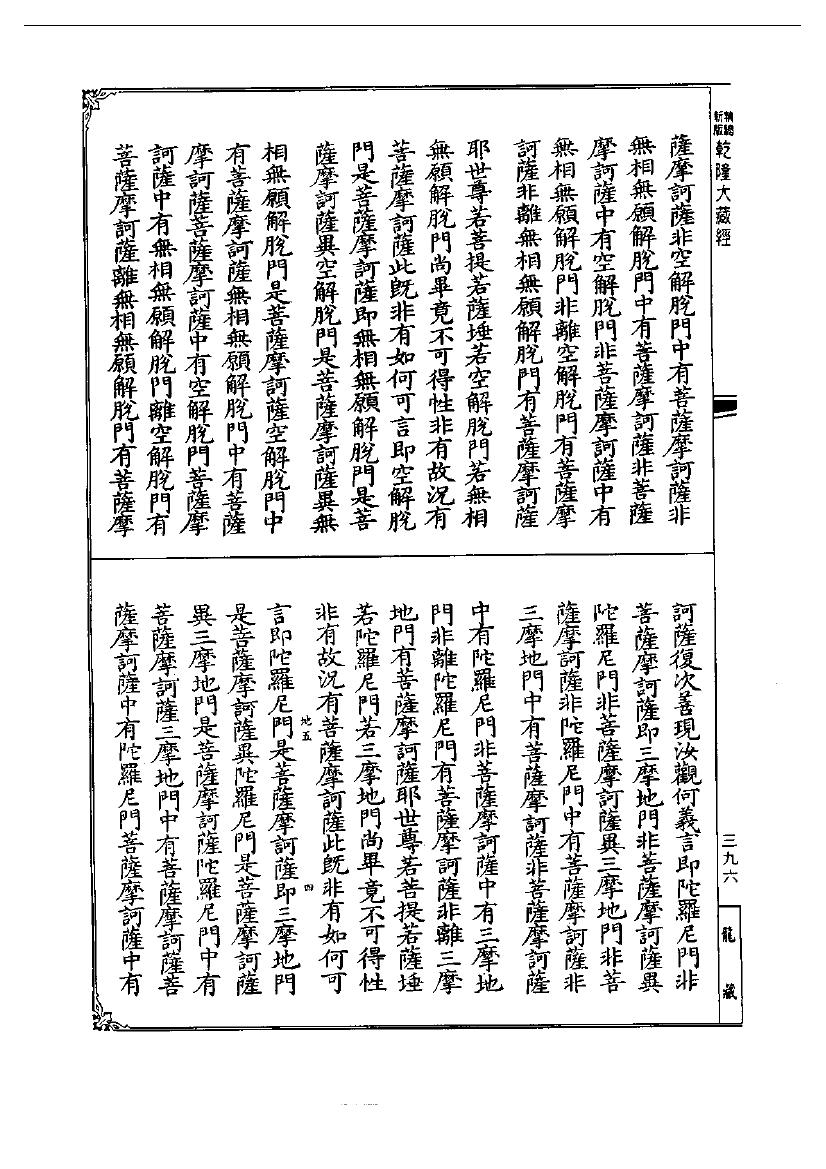 新版精縮乾隆大藏經
薩摩訶薩非空解脫門中有菩薩摩訶薩非
無相無願解脫門中有菩薩摩訶薩非菩薩
摩訶薩中有空解脫門非菩薩摩訶薩中有
無相無願解脫門非離空解脫門有菩薩摩
訶薩非離無相無願解脫門有菩薩摩訶薩
耶世尊若菩提若薩埵若空解脫門若無相
無願解脫門尚畢竟不可得性非有故況有
菩薩摩訶薩此既非有如何可言即空解脫
門是菩薩摩訶薩即無相無願解脫門是菩
薩摩訶薩異空解脫門是菩薩摩訶薩異無
相無願解脫門是菩薩摩訶薩空解脫門中
有菩薩摩訶薩無相無願解脫門中有菩薩
摩訶薩菩薩摩訶薩中有空解脫門菩薩摩
訶薩中有無相無願解脫門離空解脫門有
菩薩摩訶薩離無相無願解脫門有菩薩摩
訶薩復次善現汝觀何義言即陀羅尼門非
菩薩摩訶薩即三摩地門非菩薩摩訶薩異
陀羅尼門非菩薩摩訶薩異三摩地門非菩
薩摩訶薩非陀羅尼門中有菩薩摩訶薩非
三摩地門中有菩薩摩訶薩非菩薩摩訶薩
中有陀羅尼門非菩薩摩訶薩中有三摩地
門非離陀羅尼門有菩薩摩訶薩非離三摩
地門有菩薩摩訶薩耶世尊若菩提若薩埵
若陀羅尼門若三摩地門尚畢竟不可得性
非有故況有菩薩摩訶薩此既非有如何可
地五
四
言即陀羅尼門是菩薩摩訶薩即三摩地門
是菩薩摩訶薩異陀羅尼門是菩薩摩訶薩
異三摩地門是菩薩摩訶薩陀羅尼門中有
菩薩摩訶薩三摩地門中有菩薩摩訶薩菩
薩摩訶薩中有陀羅尼門菩薩摩訶薩中有
三九六
龍藏